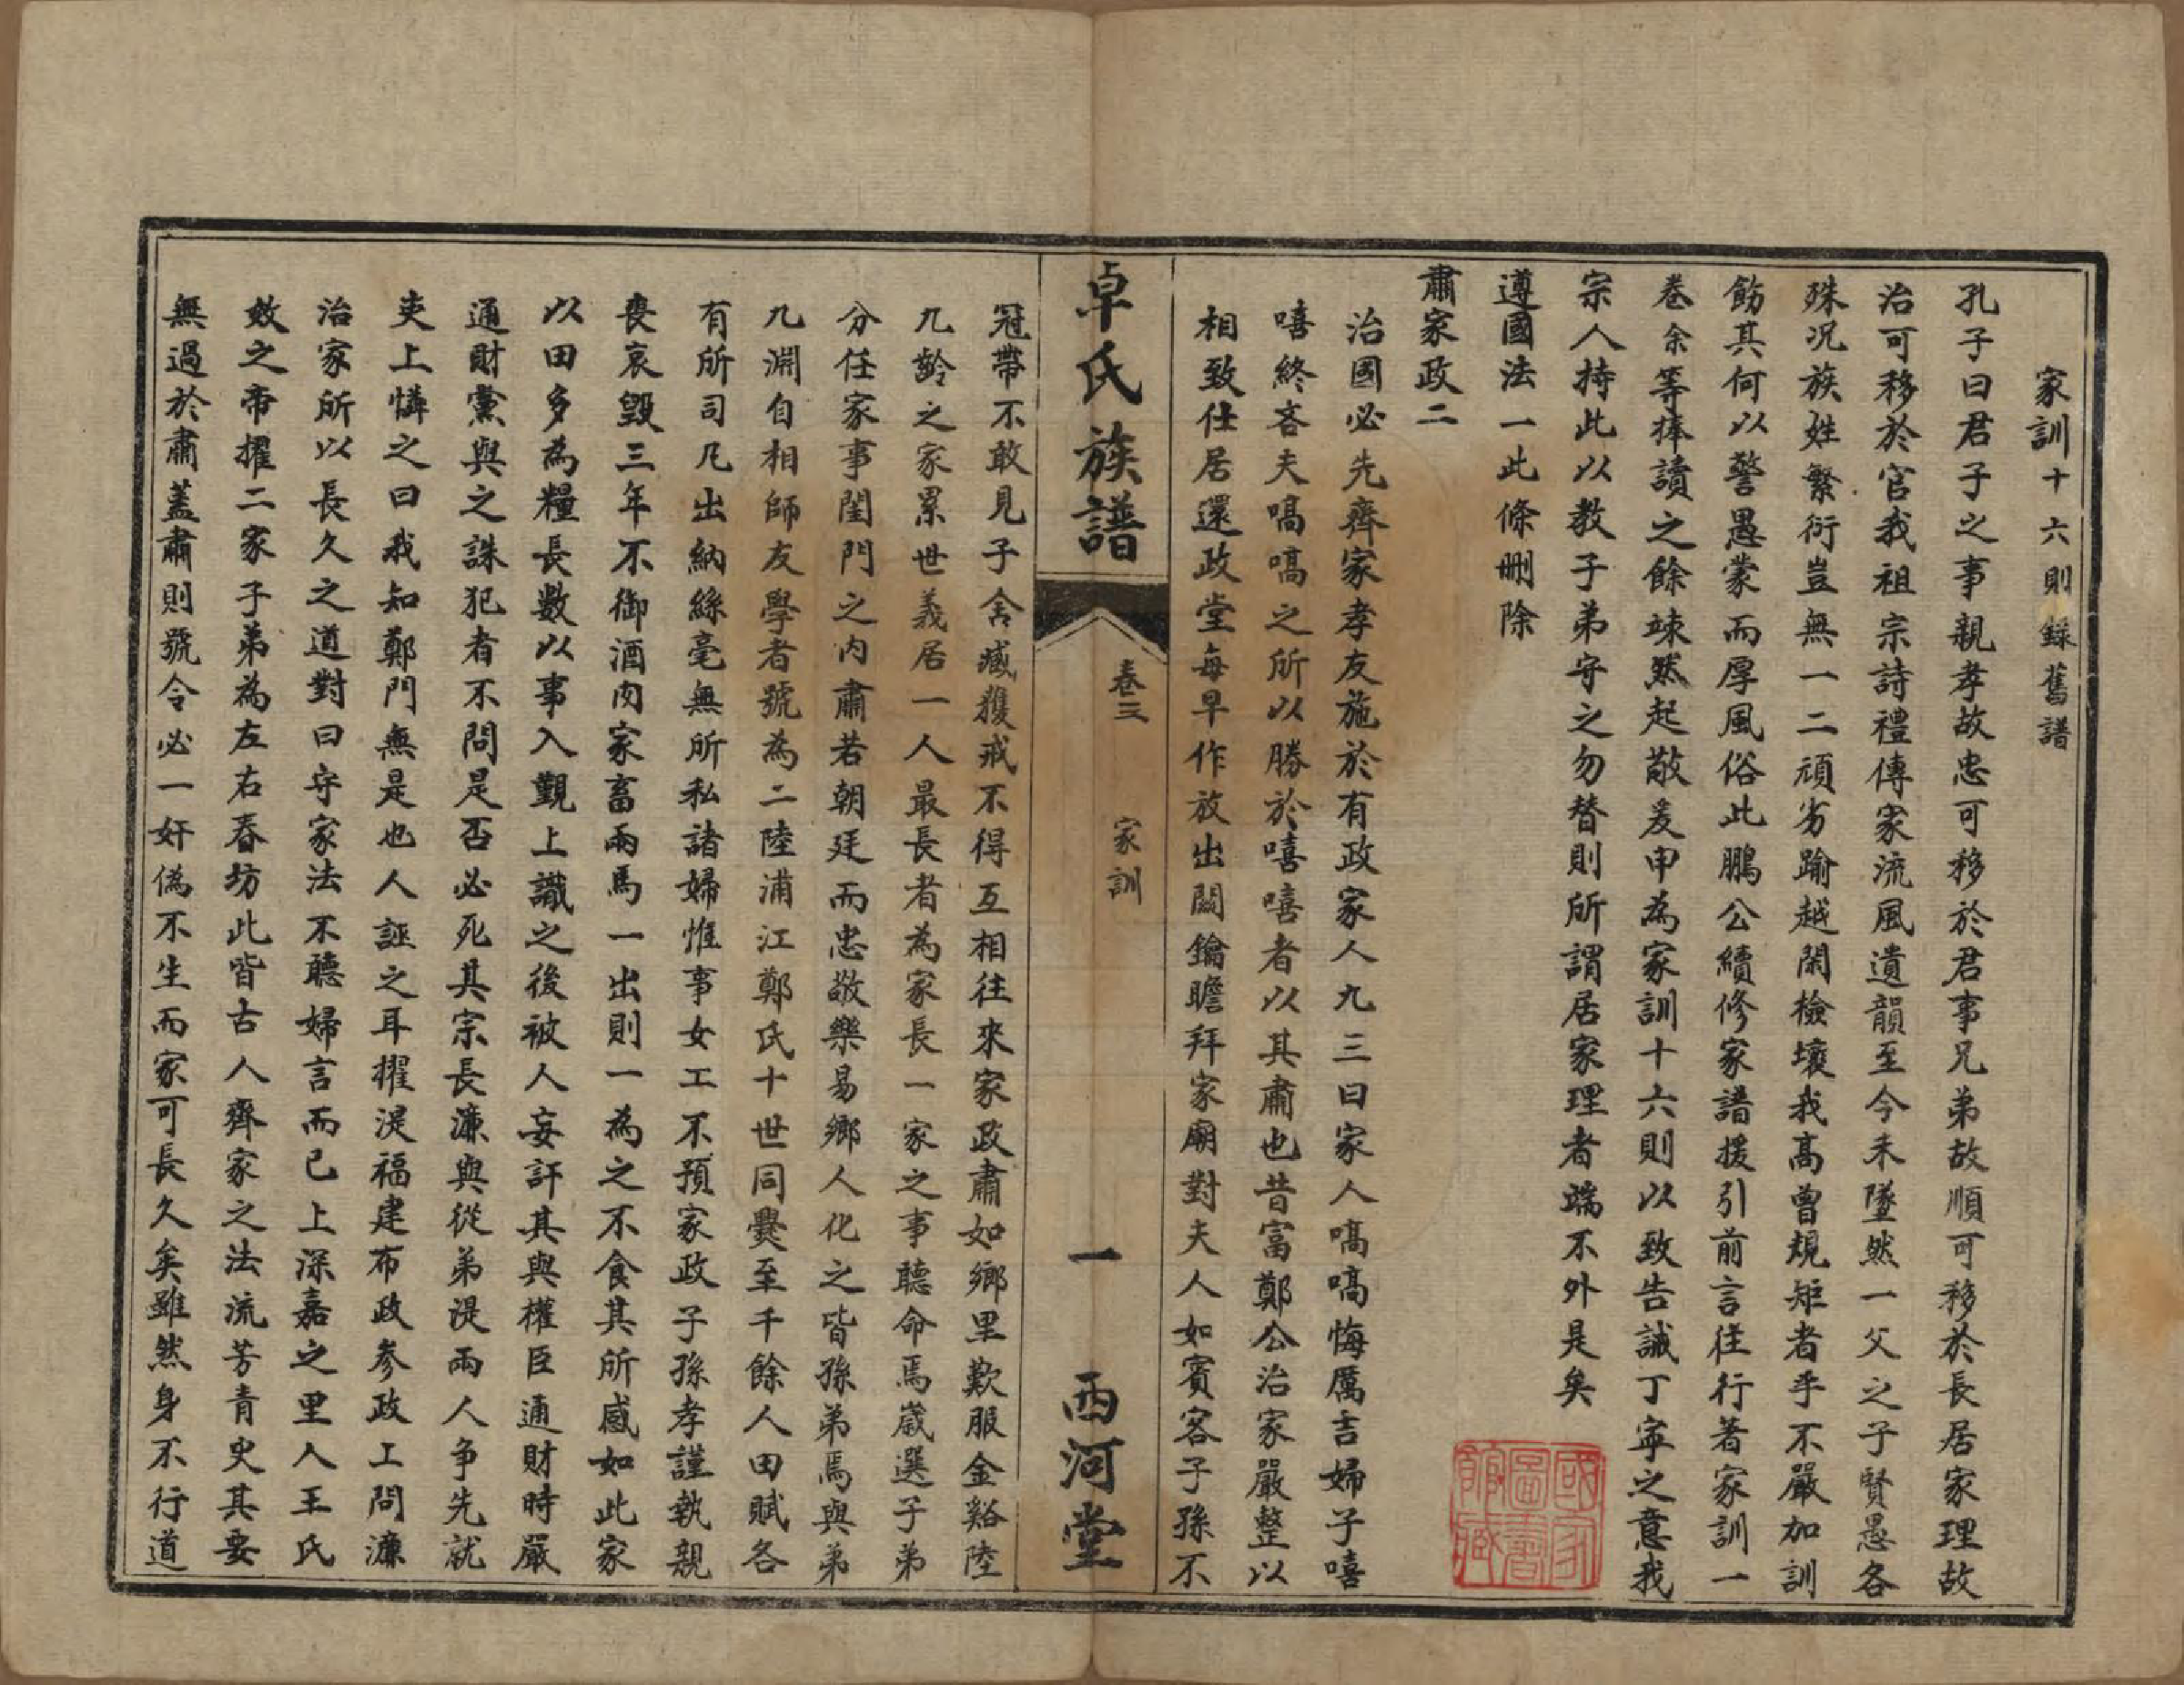 家訓十六則錄舊譜
孔子曰君子之事親孝故忠可移於君事兄弟故順可移於長居家理故
治可移於官我祖宗詩禮傳家流風遺韻至今未墜然一父之子賢愚各
殊况族姓繁衍豈無一二頑劣踰越閑檢壞我高曾規矩者乎不嚴加訓
飭其何以警愚蒙而厚風俗此鵬公續修家譜援引前言往行著家訓一
卷余等捧讀之餘竦然起敬爰申為家訓十六則以致告誡丁寧之意我
宗人持此以教子弟守之勿替則所謂居家理者端不外是矣
遵國法一此條刪除
肅家政二
治國必先齊家孝友施於有政家人九三曰家人嗃嗃悔厲吉婦子嘻
嘻終吝夫嗃嗃之所以勝於嘻嘻者以其肅也昔富鄭公治家嚴整以
相致仕居還政堂每早作放出闢鑰瞻拜家廟對夫人如賓客子孫不
卓氏族譜
卷三
家訓
一
西河堂
冠帶不敢見子舍臧獲戒不得互相往來家政肅如鄉里歎服金谿陸
九齡之家累世義居一人最長者為家長一家之事聽命焉歲選子弟
分任家事閨門之内肅若朝廷而忠敬樂易鄉人化之皆孫弟焉與弟
九淵自相師友學者號為二陸浦江鄭氏十世同爨至千餘人田賦各
有所司凡出納絲毫無所私諸婦惟事女工不預家政子孫孝謹執親
喪哀毀三年不御酒肉家畜兩馬一出則一為之不食其所感如此家
以田多為糧長數以事入覲上識之後被人妄訐其與權臣通財時嚴
通財黨與之誅犯者不問是否必死其宗長濂與從弟湜兩人争先就
吏上憐之曰我知鄭門無是也人誣之耳擢湜福建布政參政工問濂
治家所以長久之道對曰守家法不聽婦言而已上深嘉之里人王氏
效之帝擢二家子弟為左右春坊此皆古人齊家之法流芳青史其要
無過於肅蓋肅則號令必一奸偽不生而家可長久矣雖然身不行道
國家圖書館藏